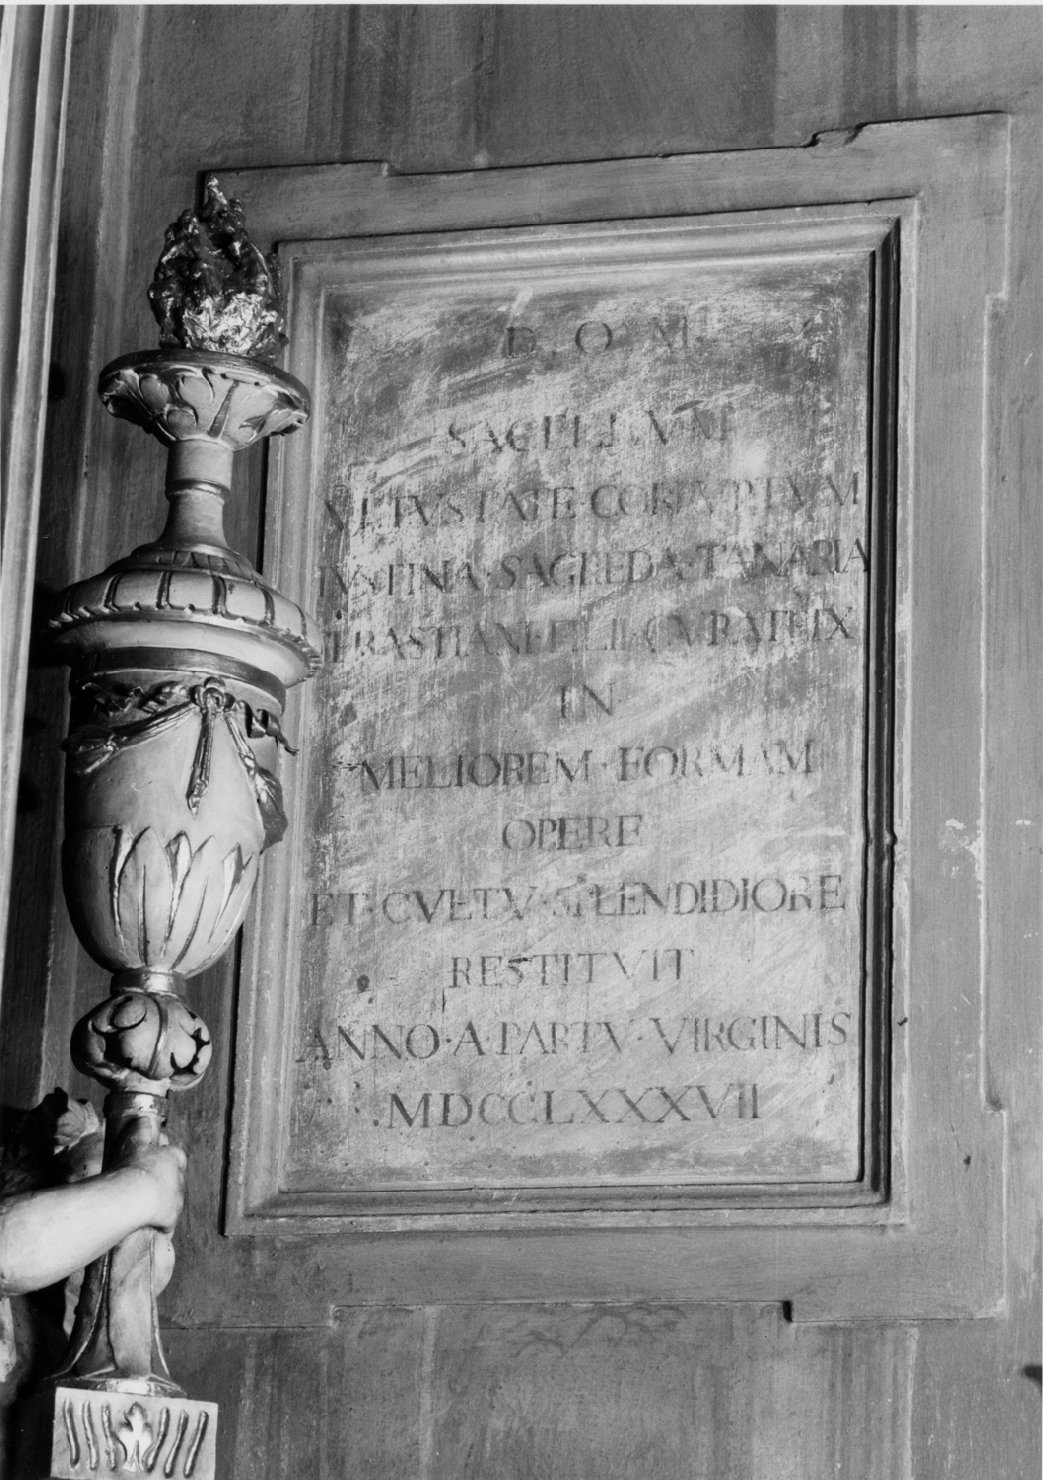 D · O · M
SACELLVM
VETVSTATE·CORRVPTVM
IVSTINA·SAGREDA·TANARIA
SEBASTIANI·FIL
IN
MELIOREM·FORMAM
OPERE
ET·CVLTV·SPLENDIDIORE
RESTITVIT
ANNO·A·PARTV·VIRGINIS
MDCCLXXXVII